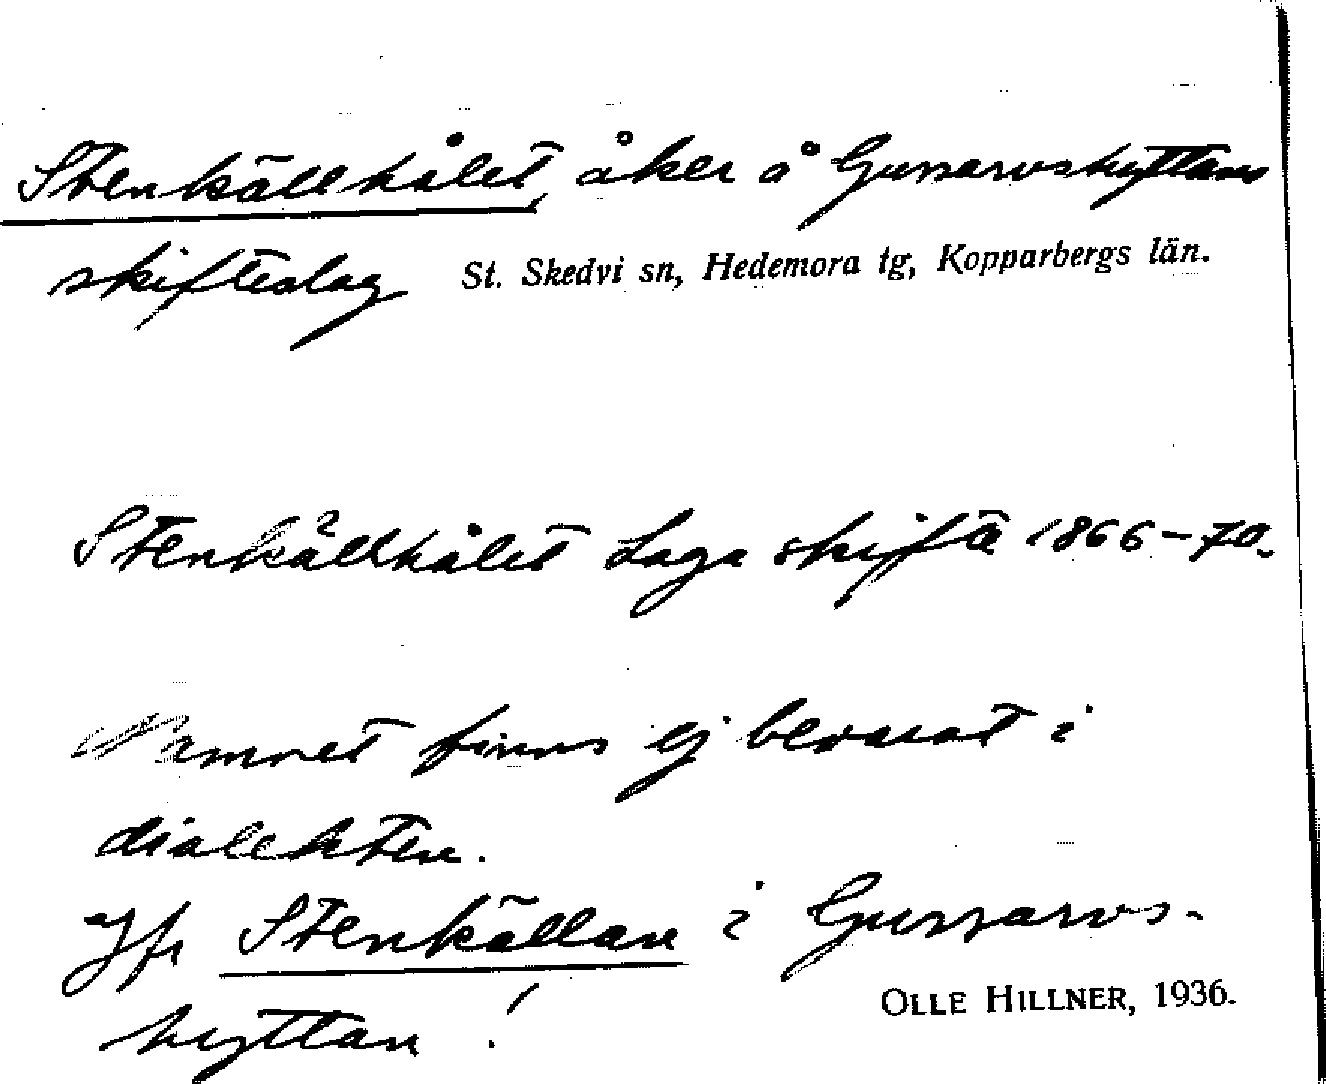 Stenkällhålet, åker å Gussarvshyttans
skifteslag St. Skedvi sn, Hedemora tg, Kopparbergs län.
Stenkällhålet Laga skifte 1866-70.
Namnet finns ej bevarat i
dialekten.
Jfr Stenkällan i Gussarvs-
hyttan!
OLLE HILLNER, 1936.